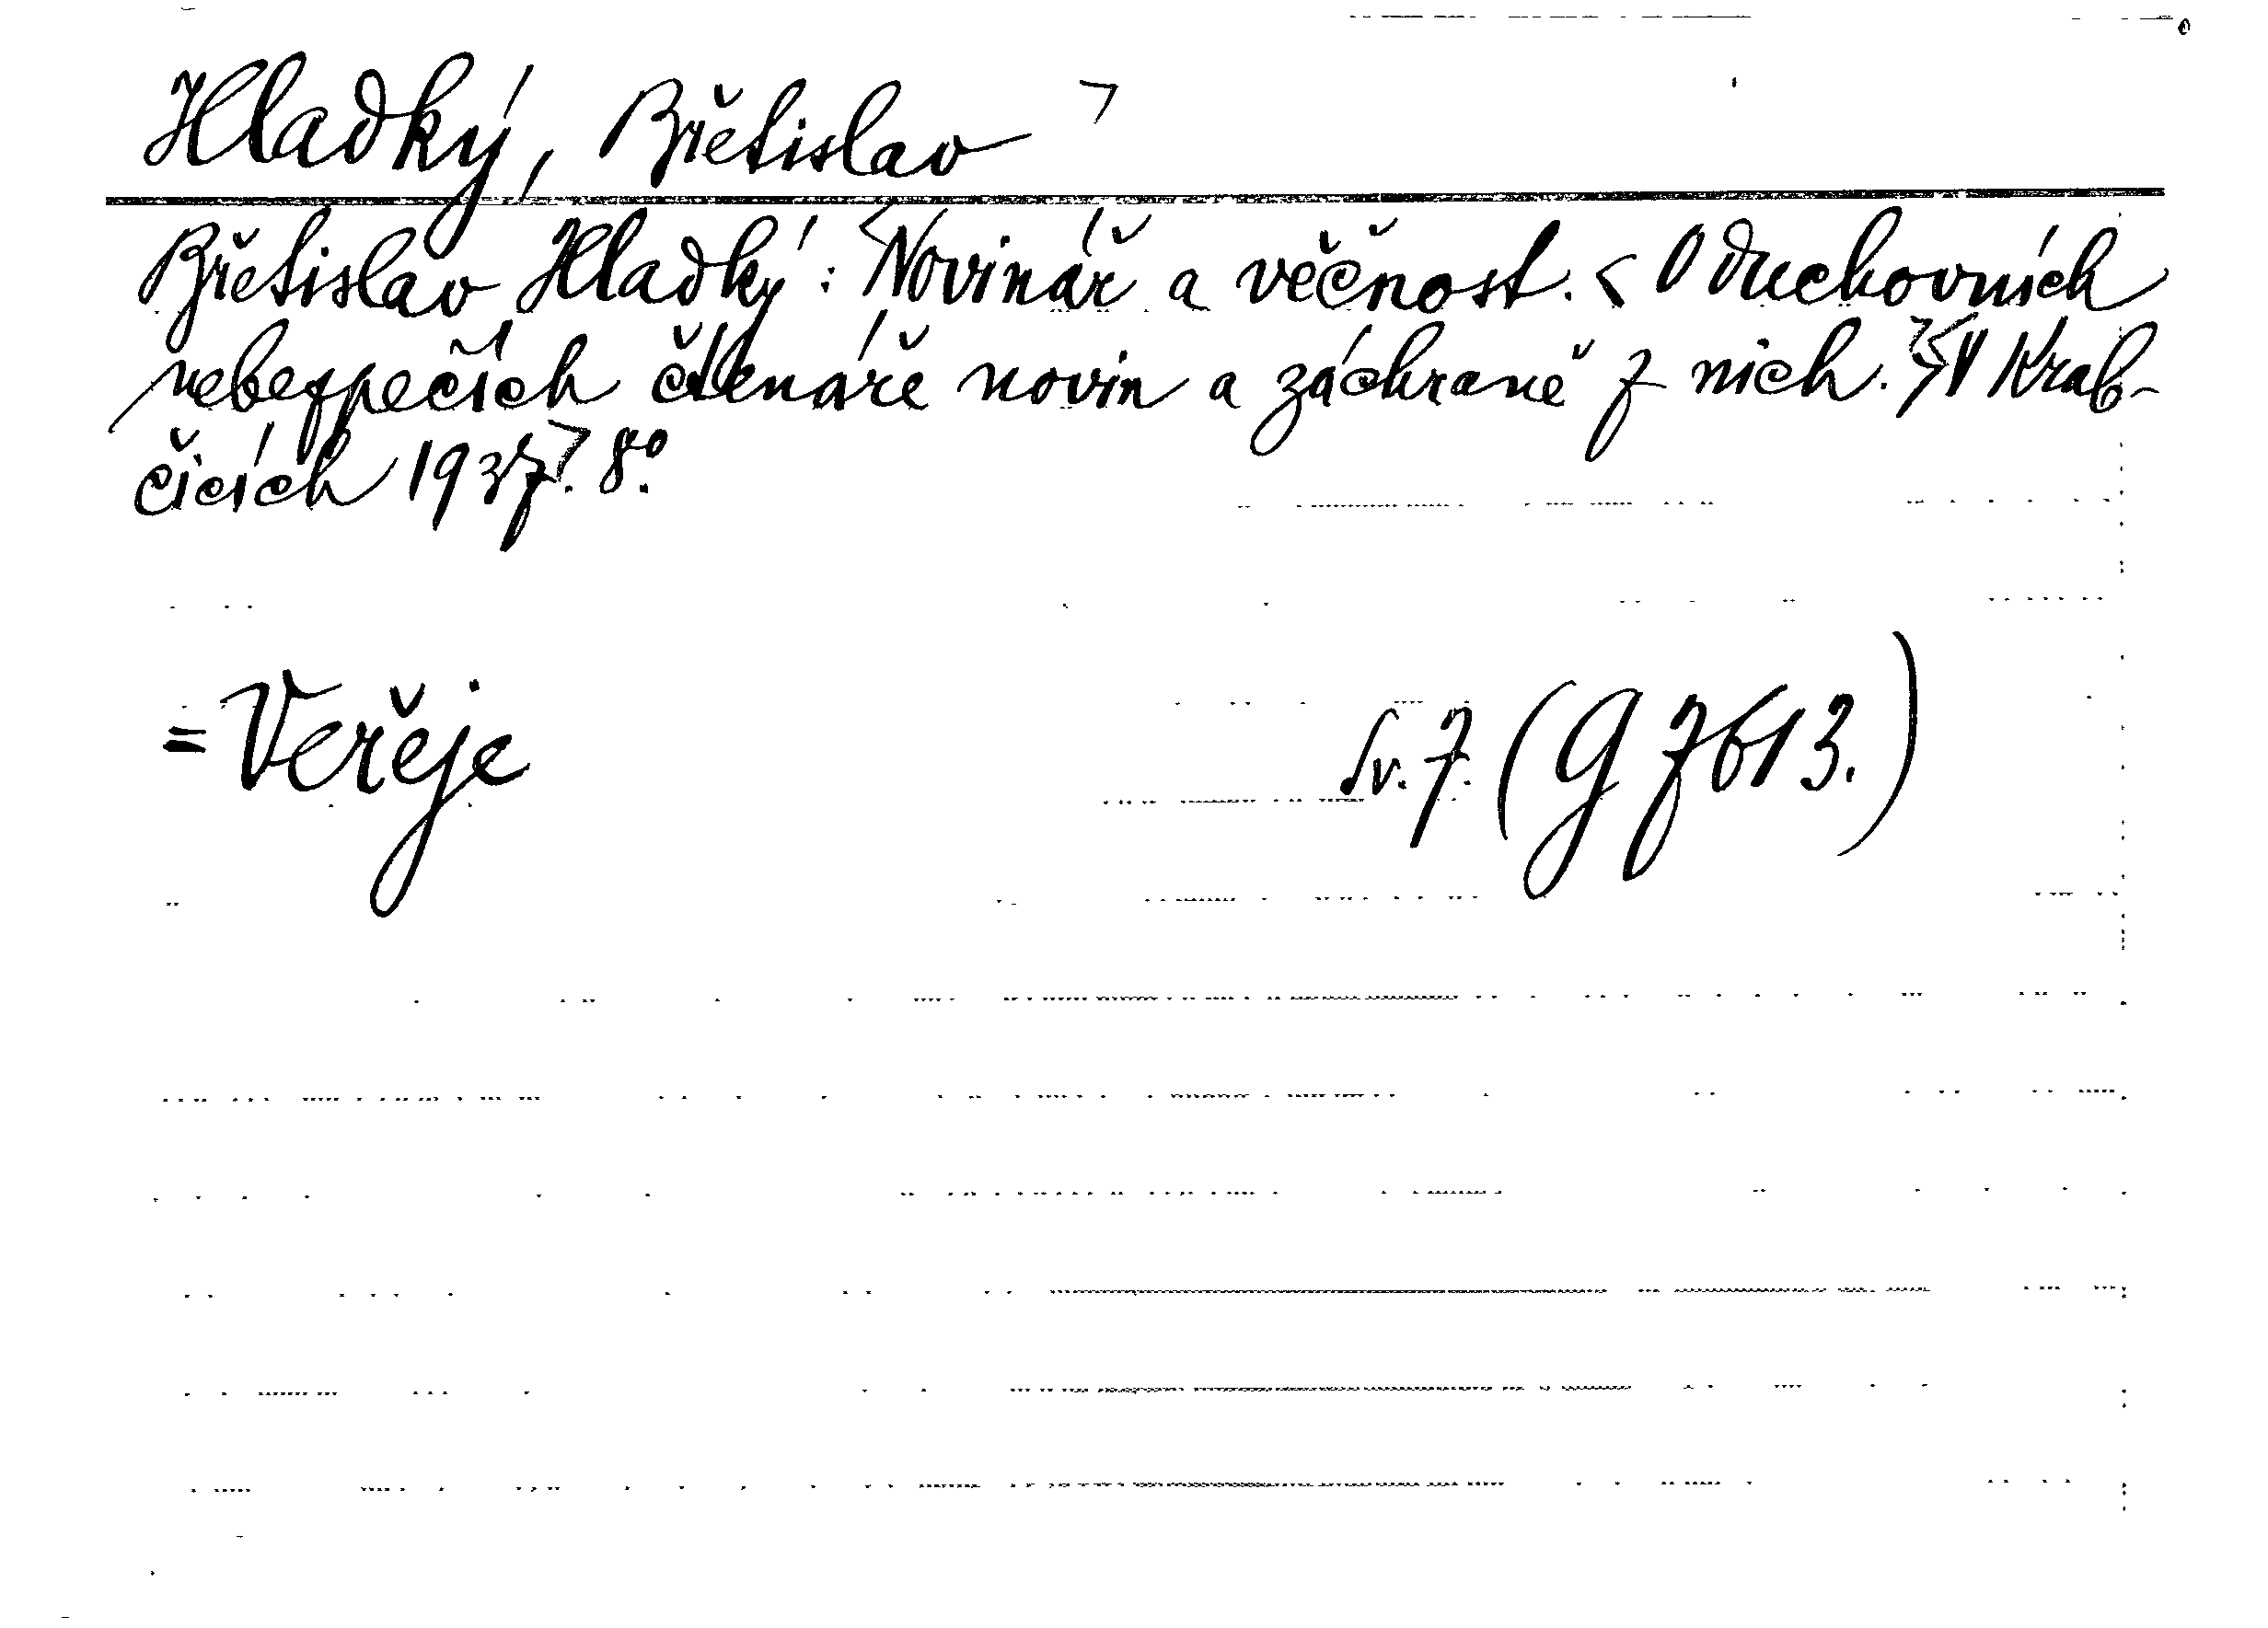 Hladký, Břetislav >
Břetislav Hladký: <Novinář a věčnost. < O duchovních
nebezpečích čtenáře novin a záchraně z nich.>< V Krab-
čicích 1937>. 8°.
= Veřeje Sv. 7. (G 7613.)